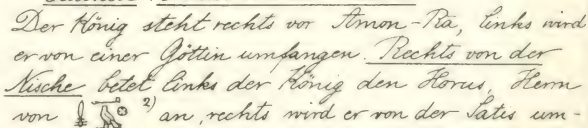 Der König steht rechts vor Amon-Ra, links wird
er von einer Göttin umfangen. Rechts von der
Nische betet links der König den Horus, Herrn
von 2) an, rechts wird er von der Satis um-